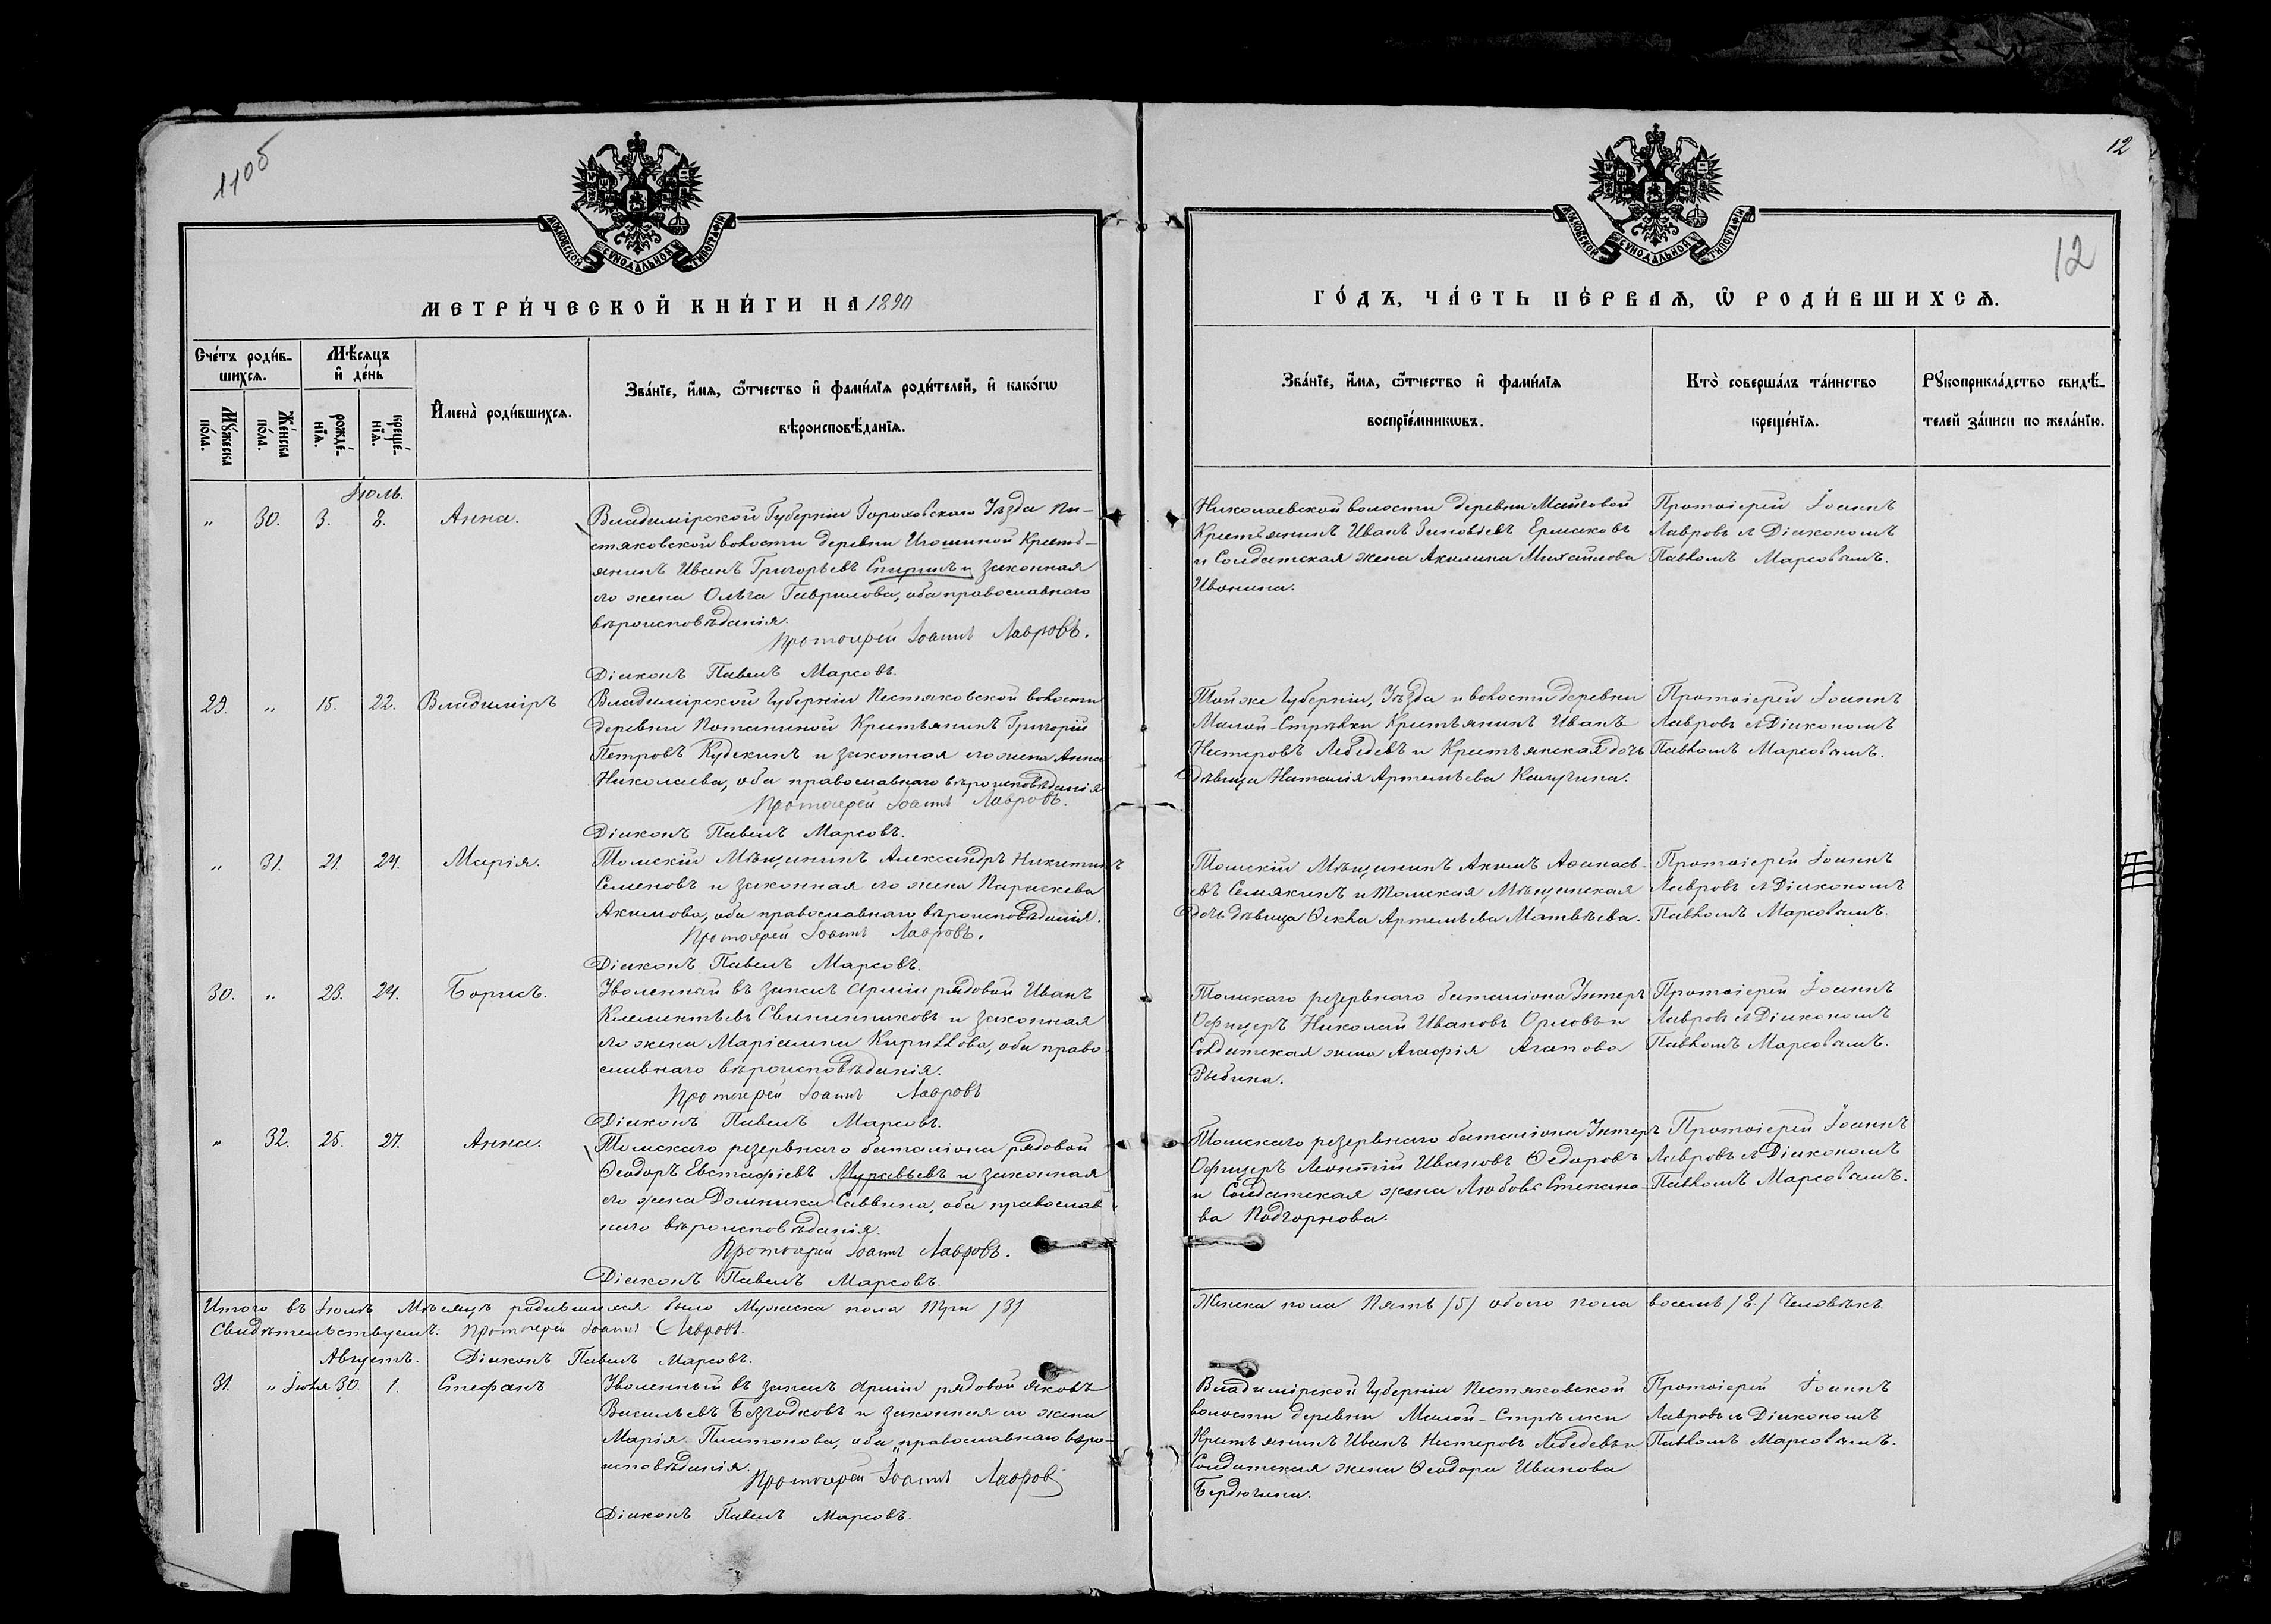 110б
12
МОСКОВСКОЙ СУНОДАЛЬНОЙ ТИПОГРАФІИ
МОСКОВСКОЙ СУНОДАЛЬНОЙ ТИПОГРАФІИ
12
МЕТРИ́ЧЕСКОЙ КНИ́ГИ НА 1890
ГО́ДЪ, ЧА́СТЬ ПЕ́РВАѦ, Ѽ РОДИ́ВШИХСѦ.
Сче́тъ роди́в-
шихсѧ.
Мѣ́сяцъ
и҆ де́нь
Мꙋ́жеска
по́ла.
Же́нска
по́ла.
рожде́-
нїѧ.
креще́-
нїѧ.
И҆мена̀ роди́вшихсѧ.
Зва́нїе, и҆́мѧ, ѻ҆́тчество и҆ фами́лїѧ роди́телей, и҆ како́гѡ
вѣроисповѣ́данїѧ.
Зва́нїе, и҆́мѧ, ѻ҆́тчество и҆ фами́лїѧ
воспрїе́мникѡвъ.
Кто̀ соверша́лъ та́инство
креще́нїѧ.
Рꙋкоприкла́дство свидѣ́-
телей за́писи по жела́нїю.
Іюль.
" 30. 3. 8. Анна.
Владимірской Губерніи Гороховскаго Уѣзда Пе-
стяковской волости деревни Игошиной Кресть-
янинъ Иванъ Григорьевъ Спиринъ и законная
его жена Ольга Гаврилова, оба православнаго
вѣроисповѣданія.
Протоіерей Іоаннъ Лавровъ.
Діаконъ Павелъ Марсовъ.
Николаевской волости деревни Майговой
Крестьянинъ Иванъ Зиновьевъ Ермаковъ
и Солдатская жена Акилина Михайлова
Ивонина.
Протоіерей Іоаннъ
Лавровъ съ Діакономъ
Павломъ Марсовымъ.
29. " 15. 22. Владиміръ
Владимірской Губерніи Пестяковской волости
деревни Потаниной Крестьянинъ Григорій
Петровъ Кудекинъ и законная его жена Анна
Николаева, оба православнаго вѣроисповѣданія
Протоіерей Іоаннъ Лавровъ.
Діаконъ Павелъ Марсовъ.
Той же Губерніи, Уѣзда и волости деревни
Малой-Стрѣлки Крестьянинъ Иванъ
Нестеровъ Лебедевъ и Крестьянская дочь
дѣвица Наталія Артемьева Калугина.
Протоіерей Іоаннъ
Лавровъ съ Діакономъ
Павломъ Марсовымъ.
" 31. 21. 24. Марія.
Томскій Мѣщанинъ Александръ Никитинъ
Семеновъ и законная его жена Параскева
Акимова, оба православнаго вѣроисповѣданія.
Протоіерей Іоаннъ Лавровъ.
Діаконъ Павелъ Марсовъ.
Томскій Мѣщанинъ Акимъ Аѳанась-
евъ Семякинъ и Томская Мѣщанская
дочь дѣвица Ѳекла Артемьева Матвѣева.
Протоіерей Іоаннъ
Лавровъ съ Діакономъ
Павломъ Марсовымъ.
30. " 23. 24. Борисъ.
Уволенный въ запасъ Арміи рядовой Иванъ
Клементьевъ Свининниковъ и законная
его жена Маріамна Кириллова, оба право-
славнаго вѣроисповѣданія.
Протоіерей Іоаннъ Лавровъ
Діаконъ Павелъ Марсовъ.
Томскаго резервнаго баталіона Унтеръ
Офицеръ Николай Ивановъ Орловъ и
Солдатская жена Агафія Агапова
Рыбина.
Протоіерей Іоаннъ
Лавровъ съ Діакономъ
Павломъ Марсовымъ.
" 32. 25. 27. Анна.
Томскаго резервнаго баталіона рядовой
Ѳеодоръ Евстафіевъ Муравьевъ и законная
его жена Домника Саввина, оба православ
наго вѣроисповѣданія.
Протоіерей Іоаннъ Лавровъ.
Діаконъ Павелъ Марсовъ.
Томскаго резервнаго баталіона Унтеръ
Офицеръ Леонтій Ивановъ Ѳедоровъ
и Солдатская жена Любовь Степано-
ва Подгорнова.
Протоіерей Іоаннъ
Лавровъ съ Діакономъ
Павломъ Марсовымъ.
Итого въ Іюлѣ Мѣсяцѣ родившихся было Мужеска пола три /3/
Женска пола Пять /5/ обоего пола восемь /8./ Человѣкъ.
Свидѣтельствуемъ: Протоіерей Іоаннъ Лавровъ.
Августъ. Діаконъ Павелъ Марсовъ.
31. " Іюля 30. 1. Стефанъ
Уволенный въ запасъ Арміи рядовой Яковъ
Васильевъ Безгодковъ и законная его жена
Марія Платонова, оба православнаго вѣро-
исповѣданія.
Протоіерей Іоаннъ Лавровъ
Діаконъ Павелъ Марсовъ.
Владимірской Губерніи Пестяковской
волости деревни Малой-Стрѣлки
Крестьянинъ Иванъ Нестеровъ Лебедевъ и
Солдатская жена Ѳеодора Иванова
Бердюгина.
Протоіерей Іоаннъ
Лавровъ съ Діакономъ
Павломъ Марсовымъ.